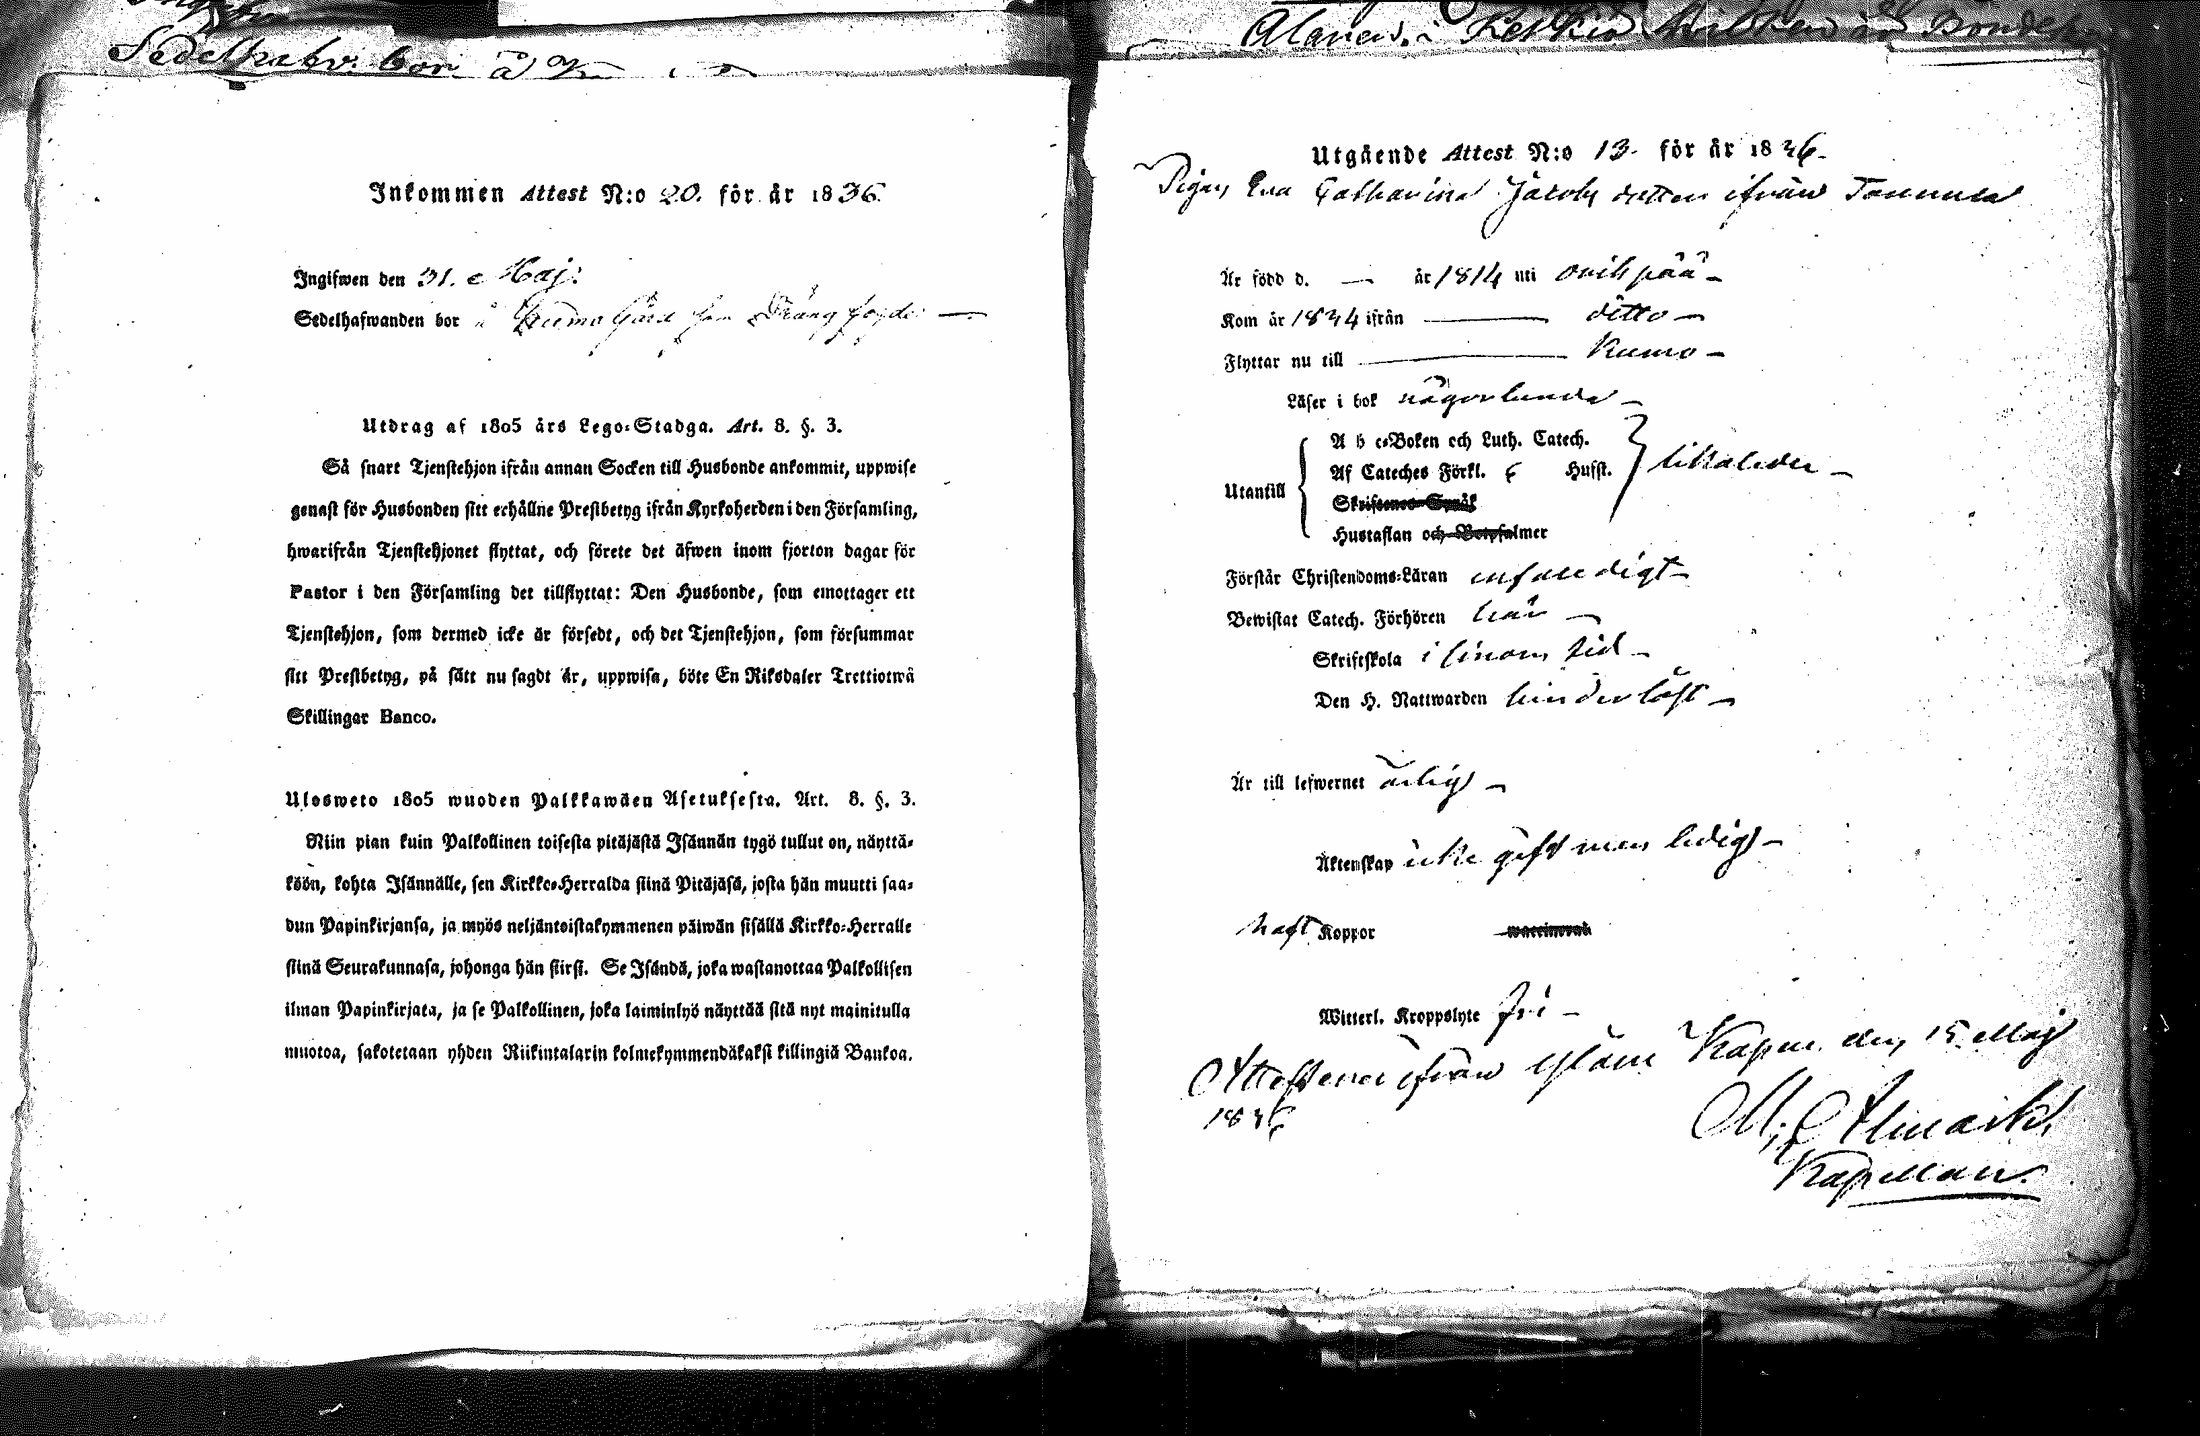 Sedelhafv. bor å
Inkommen Attest N:o 20. för år 1836.
Ingifwen den 31. Maj:
Sedelhafwanden bor å Kumo Gård hos Drängfogde
Utdrag af 1805 års Lego-Stadga. Art. 8. §. 3.
Så snart Tjenstehjon ifrån annan Socken till Husbonde ankommit, uppwise
genast för Husbonden sitt erhållne Prestbetyg ifrån Kyrkoherden i den Församling,
hwarifrån Tjenstehjonet flyttat, och förete det äfwen inom fjorton dagar för
Pastor i den Församling det tillflyttat: Den Husbonde, som emottager ett
Tjenstehjon, som dermed icke är försedt, och det Tjenstehjon, som försummar
sitt Prestbetyg, på sätt nu sagdt är, uppwisa, böte En Riksdaler Trettiotwå
Skillingar Banco.
Ulosweto 1805 wuoden Palkkawäen Asetuksesta. Art. 8. §. 3.
Niin pian kuin Palkollinen toisesta pitäjästä Isännän tygö tullut on, näyttä-
köön, kohta Isännälle, sen Kirkko-Herralda siinä Pitäjäsä, josta hän muutti saa-
dun Papinkirjansa, ja myös neljäntoistakymmenen päiwän sisällä Kirkko-Herralle
siinä Seurakunnasa, johonga hän siirsi. Se Isändä, joka wastanottaa Palkollisen
ilman Papinkirjata, ja se Palkollinen, joka laiminlyö näyttää sitä nyt mainitulla
muotoa, sakotetaan yhden Riikintalarin kolmekymmendäkaksi killingiä Bankoa.
i
är Bönde
Utgående Attest N:o 13. för år 1836.
Pigan Eva Catharina Jacobs dotter ifrån
Är född d. — år 1814 uti
Kom år 1834 ifrån — ditto —
Flyttar nu till — Kumo —
Läser i bok någorlunda —
A b c-Boken och Luth. Catech.
Af Cateches Förkl. Husst. likaledes —
Utantill
Skriftenes Språk
Hustaflan och Botpsalmer
Förstår Christendoms-Läran enfaldigt —
Bewistat Catech. Förhören här —
Skriftskola i sinom tid —
Den H. Nattwarden hinderlöst —
Är till lefwernet ärlig —
Äktenskap icke gift men ledig —
haft Koppor waccinerad
Witterl. Kroppslyte fri —
Attesterar ifrån Kapell den 15 Maj
1836
Kapellan.